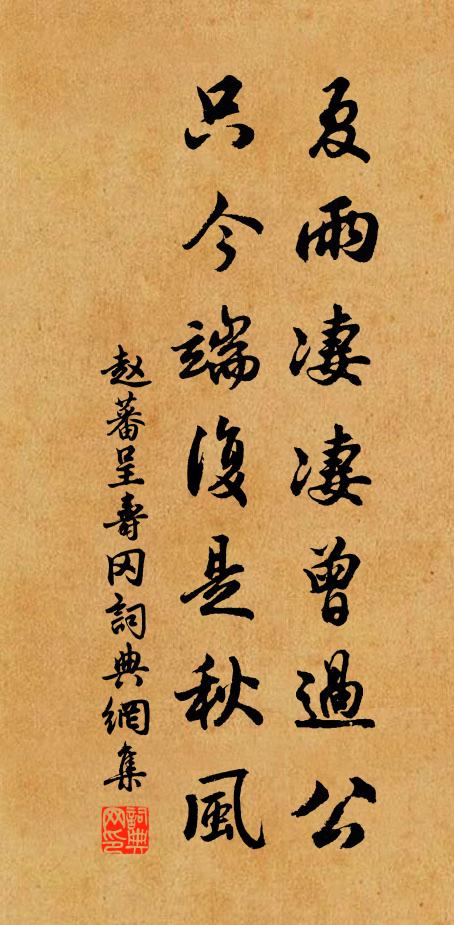 夏雨凄凄曾過公
只今端復是秋風
赵蕃呈壽冈詞典網集
詞典网印